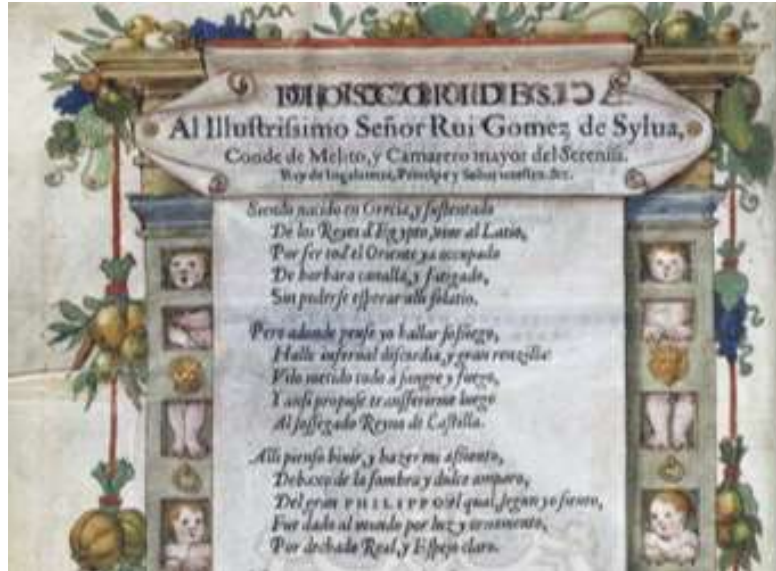 DIOSCORIDES
Al Illustrissimo Señor Rui Gomez de Sylua,
Conde de Melito, y Camarero mayor del Sereniss.
Rey de Ingalaterra, Principe y Señor nuestro. &c.
Siendo nacido en Grecia, y sustentado
De los Reyes d'Egypto, vine al Latio,
Por ser tod'el Oriente ya occupado
De barbara canalla, y fatigado,
Sin poderse esperar alli solatio.
Pero adonde pense yo hallar sossiego,
Halle infernal discordia, y gran renzilla:
Vilo metido todo a sangre y fuego,
Y ansi propuse transferirme luego
Al sossegado Reyno de Castilla.
Alli pienso biuir, y hazer mi assiento,
Debaxo de la sombra y dulce amparo,
Del gran PHILIPPO: el qual, segun yo siento,
Fue dado al mundo por luz y ornamento,
Por dechado Real, y Espejo claro.